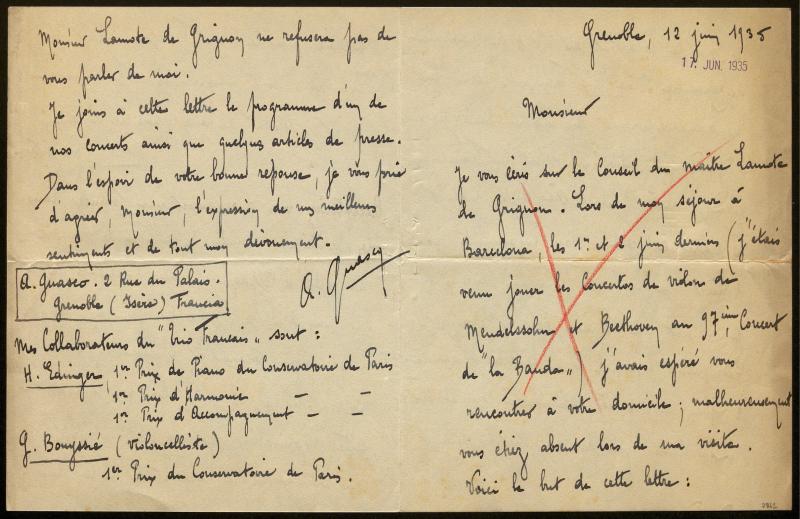 Grenoble, 12 juin 1935
17. JUN. 1935
Monsieur
Je vous écris sur le conseil du maître Lamote
de Grignon. Lors de mon séjour à
Barcelona, les 1er et 2 juin derniers (j'étais
venu jouer les Concertos de violon de
Mendelssohn et Beethoven au 97ième Concert
de "la Banda") j'avais espéré vous
rencontrer à votre domicile; malheureusement
vous étiez absent lors de ma visite.
Voici le but de cette lettre:
Monsieur Lamote de Grignon ne refusera pas de
vous parler de moi.
Je joins à cette lettre le programme d'un de
nos concerts ainsi que quelques articles de presse.
Dans l'espoir de votre bonne réponse, je vous prie
d'agréer, Monsieur, l'expression de mes meilleurs
sentiments et de tout mon dévouement.
A. Guasco
A. Guasco. 2 Rue du Palais.
Grenoble (Isère) Francia
Mes Collaborateurs du "Trio Français" sont:
H. Edinger, 1er Prix de Piano du Conservatoire de Paris
1er Prix d'Harmonie — —
1er Prix d'Accompagnement — —
G. Bouyssié (violoncelliste)
1er Prix du Conservatoire de Paris.